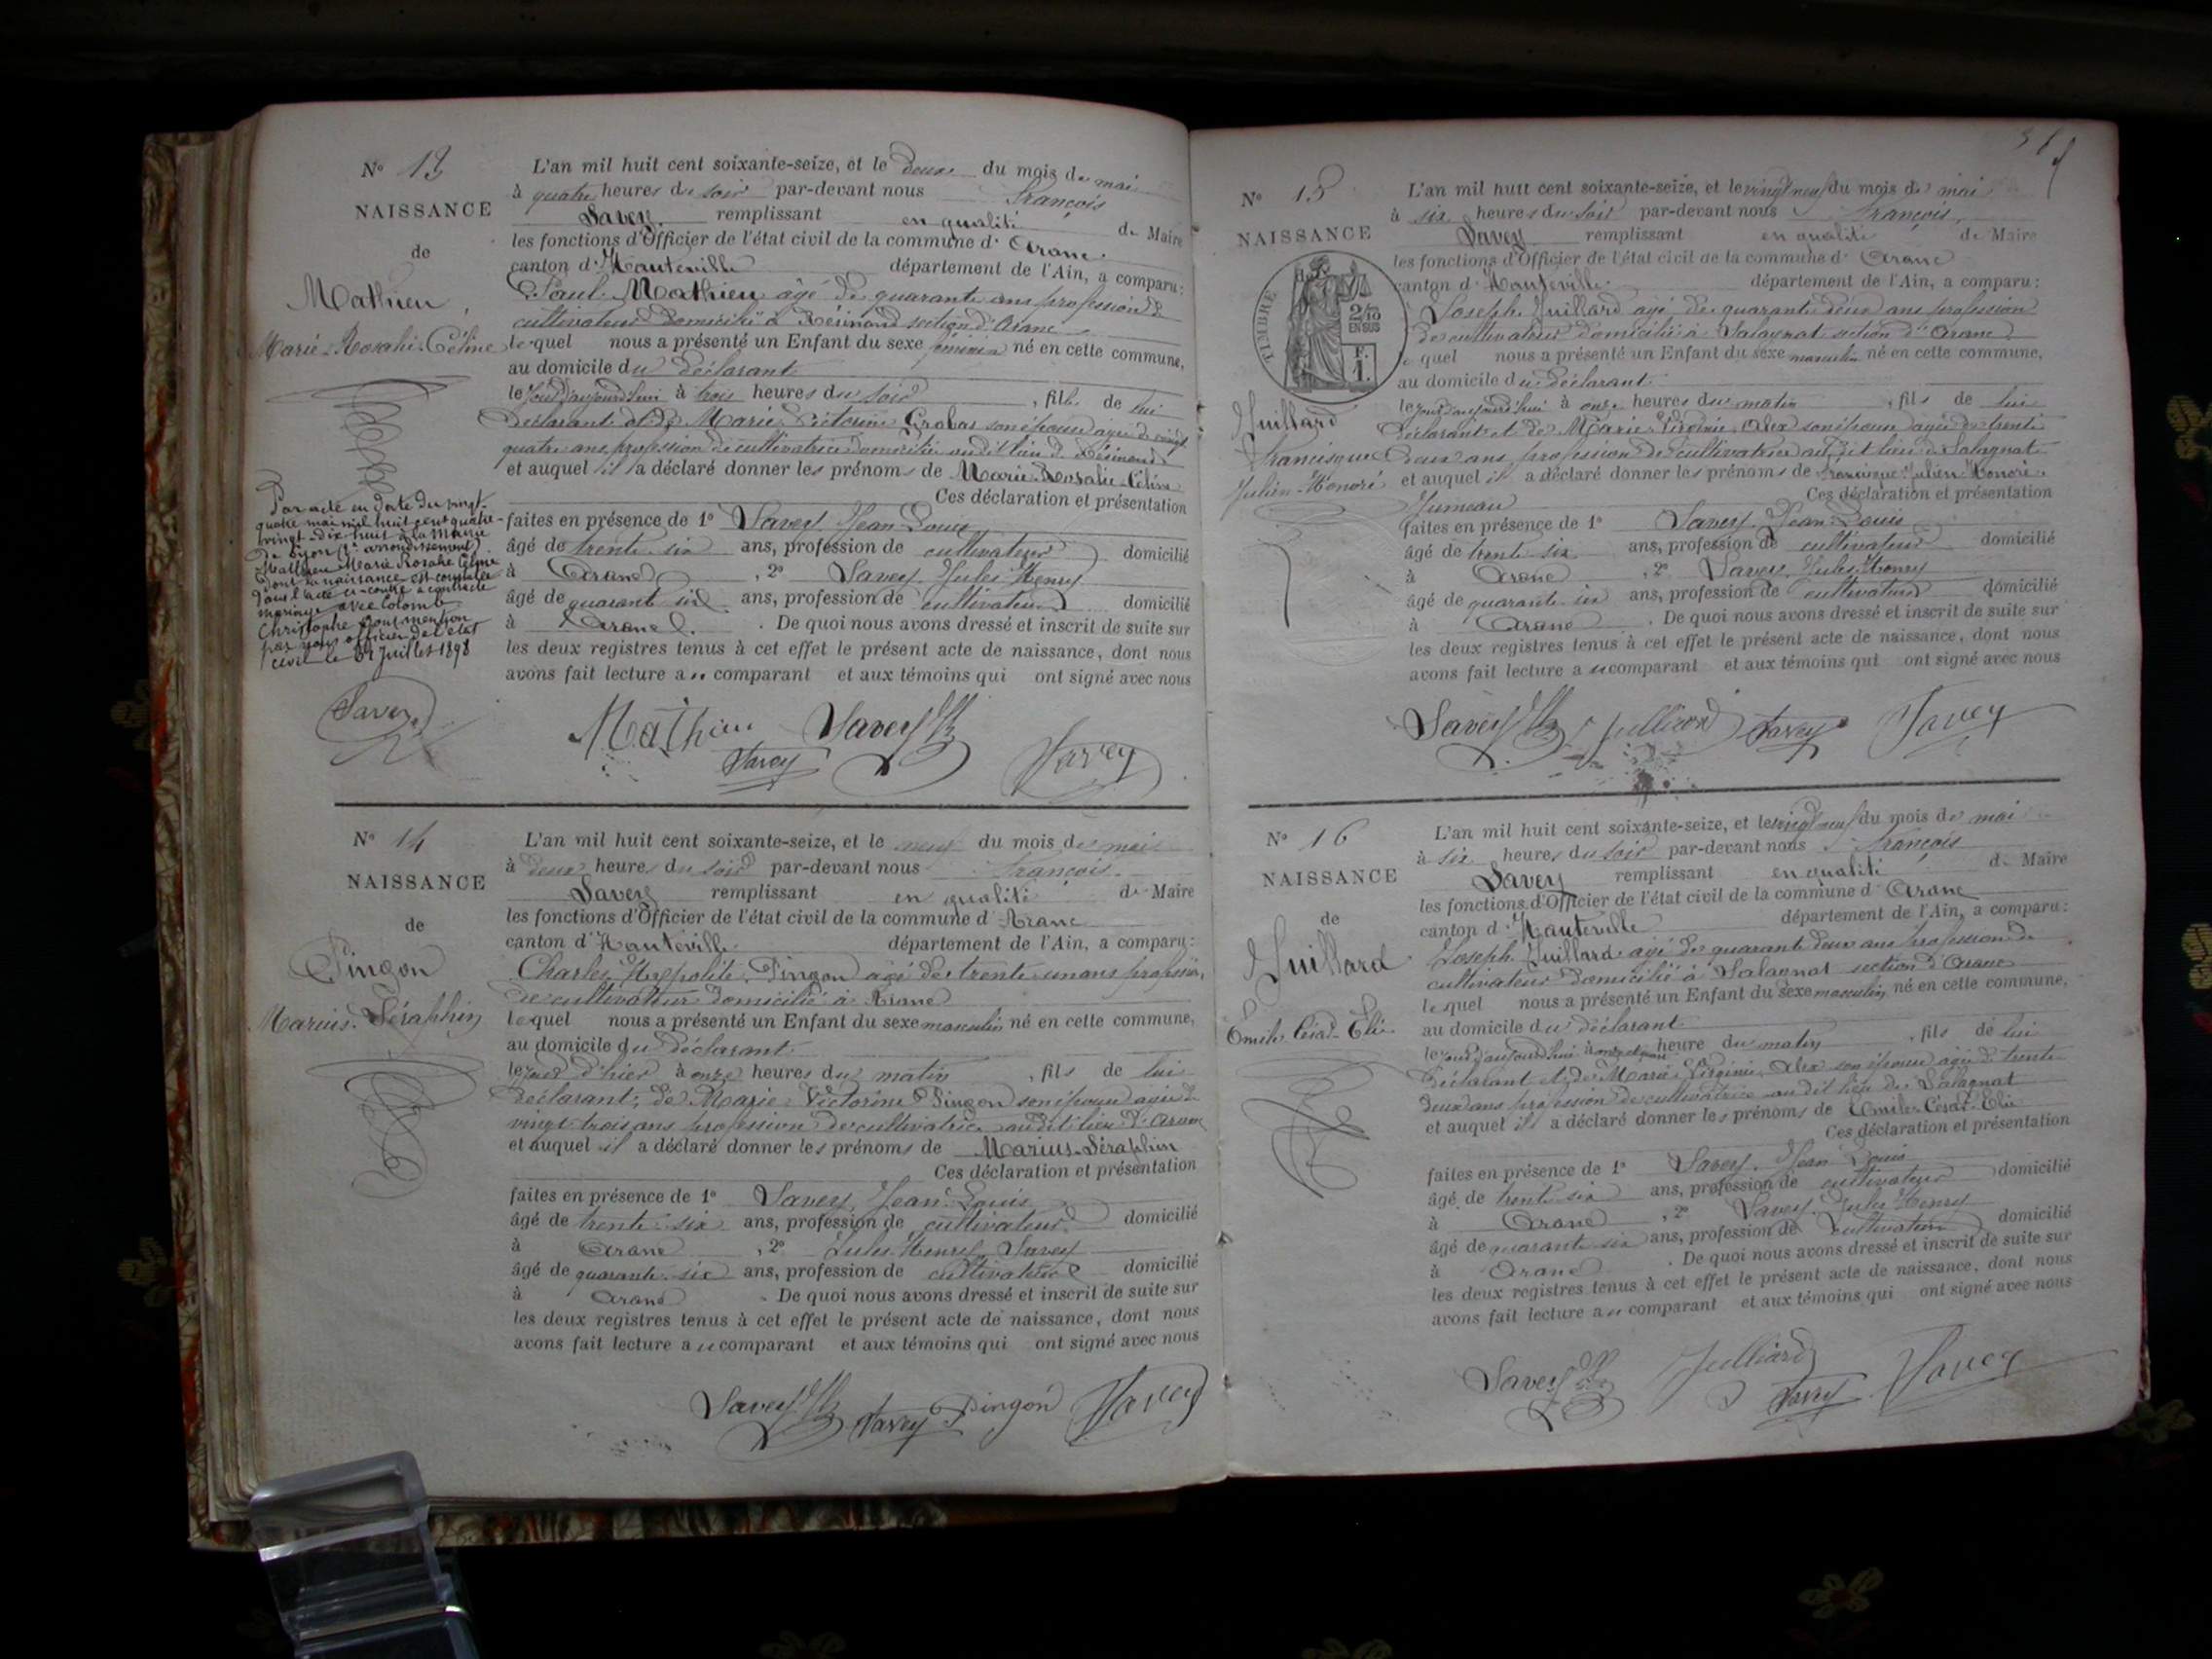 N° 13
NAISSANCE
de
Mathieu
Marie-Rosalie-Céline
L'an mil huit cent soixante-seize, et le deux du mois de mai
à quatre heures du soir par-devant nous François
Savey remplissant en qualité de Maire
les fonctions d'Officier de l'état civil de la commune d' Arane
canton d' Hauteville département de l'Ain, a comparu:
Paul Mathieu âgé de quarante ans profession de
cultivateur domicilié à Résinand section d'Arane
lequel nous a présenté un Enfant du sexe féminin né en cette commune,
au domicile du déclarant
le jour d'aujourd'hui à trois heures du soir, fille de lui
déclarant et de Marie Victorine Grobas son épouse âgée de vingt
quatre ans, profession de cultivatrice domiciliée au dit lieu de Résinand
et auquel il a déclaré donner les prénoms de Marie-Rosalie-Céline
Ces déclaration et présentation
faites en présence de 1° Savey Jean Louis
âgé de trente six ans, profession de cultivateur domicilié
à Arane, 2° Savey Jules Henry
âgé de quarant six ans, profession de cultivateur domicilié
à Arane. De quoi nous avons dressé et inscrit de suite sur
les deux registres tenus à cet effet le présent acte de naissance, dont nous
avons fait lecture au comparant et aux témoins qui ont signé avec nous
Par acte en date du vingt-
quatre mai mil huit cent quatre-
vingt-dix huit à la Mairie
de Lyon (1er arrondissement)
Mathieu Marie Rosalie Céline
dont la naissance est constatée
dans l'acte ci-contre a contracté
mariage avec Colomb
Christophe pour mention
par nous officier de l'état
civil le Juillet 1898
Savey
Mathieu Savey
Savey Savey
N° 14
NAISSANCE
de
Pingon
Marius-Séraphin
L'an mil huit cent soixante-seize, et le neuf du mois de mai
à deux heures du soir par-devant nous François
Savey remplissant en qualité de Maire
les fonctions d'Officier de l'état civil de la commune d' Arane
canton d' Hauteville département de l'Ain, a comparu:
Charles Hyppolite Pingon âgé de trente un ans profession
de cultivateur domicilié à Arane
lequel nous a présenté un Enfant du sexe masculin né en cette commune,
au domicile du déclarant
le jour d'hier à onze heures du matin, fils de lui
déclarant, de Marie Victorine Pingon son épouse âgée de
vingt trois ans profession de cultivatrice au dit lieu d'Arane
et auquel il a déclaré donner les prénoms de Marius-Séraphin
Ces déclaration et présentation
faites en présence de 1° Savey Jean Louis
âgé de trente-six ans, profession de cultivateur domicilié
à Arane, 2° Jules Henry Savey
âgé de quarante-six ans, profession de cultivateur domicilié
à Arane. De quoi nous avons dressé et inscrit de suite sur
les deux registres tenus à cet effet le présent acte de naissance, dont nous
avons fait lecture au comparant et aux témoins qui ont signé avec nous
Savey Savey Pingon Savey
N° 15
NAISSANCE
TIMBRE
2/10
EN SUS
F.
1.
Juillard
Francisque
Julien-Honoré
L'an mil huit cent soixante-seize, et le vingt neuf du mois de mai
à six heures du soir par-devant nous François
Savey remplissant en qualité de Maire
les fonctions d'Officier de l'état civil de la commune d' Arane
canton d' Hauteville département de l'Ain, a comparu:
Joseph Juillard âgé de quarante deux ans profession
de cultivateur domicilié à Salagnat section d'Arane
lequel nous a présenté un Enfant du sexe masculin né en cette commune,
au domicile du déclarant
le jour d'aujourd'hui à onze heures du matin, fils de lui
déclarant et de Marie Virginie Alex son épouse âgée de trente
deux ans profession de cultivatrice au dit lieu de Salagnat
et auquel il a déclaré donner les prénoms de Francisque-Julien-Honoré
Jumeau Ces déclaration et présentation
faites en présence de 1° Savey Jean-Louis
âgé de trente six ans, profession de cultivateur domicilié
à Arane, 2° Savey Jules Henry
âgé de quarante-six ans, profession de cultivateur domicilié
à Arane. De quoi nous avons dressé et inscrit de suite sur
les deux registres tenus à cet effet le présent acte de naissance, dont nous
avons fait lecture au comparant et aux témoins qui ont signé avec nous
Savey Juilliard Savey Savey
N° 16
NAISSANCE
de
Juillard
Emile-César-Elie
L'an mil huit cent soixante-seize, et le vingt neuf du mois de mai
à six heures du soir par-devant nous François
Savey remplissant en qualité de Maire
les fonctions d'Officier de l'état civil de la commune d' Arane
canton d' Hauteville département de l'Ain, a comparu:
Joseph Juillard âgé de quarante deux ans profession de
cultivateur domicilié à Salagnat section d'Arane
lequel nous a présenté un Enfant du sexe masculin né en cette commune,
au domicile du déclarant
le jour d'aujourd'hui à onze et quart heure du matin, fils de lui
déclarant et de Marie Virginie Alex son épouse âgée de trente
deux ans profession de cultivatrice au dit lieu de Salagnat
et auquel il a déclaré donner les prénoms de Emile-César-Elie
Ces déclaration et présentation
faites en présence de 1° Savey Jean Louis
âgé de trente six ans, profession de cultivateur domicilié
à Arane, 2° Savey Jules Henry
âgé de quarante six ans, profession de cultivateur domicilié
à Arane. De quoi nous avons dressé et inscrit de suite sur
les deux registres tenus à cet effet le présent acte de naissance, dont nous
avons fait lecture au comparant et aux témoins qui ont signé avec nous
Savey Juilliard Savey Savey